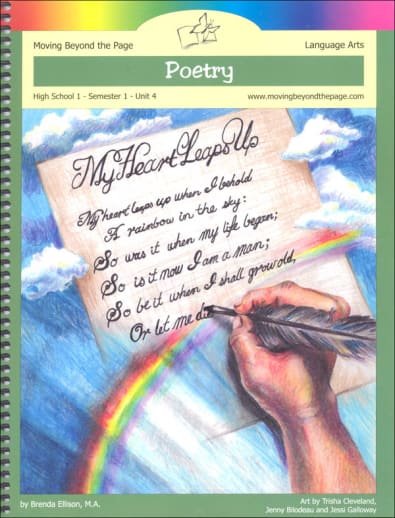 Moving Beyond the Page
Language Arts
Poetry
High School 1 - Semester 1 - Unit 4
www.movingbeyondthepage.com
My Heart Leaps Up
My heart leaps up when I behold
A rainbow in the sky:
So was it when my life began;
So is it now I am a man;
So be it when I shall grow old,
Or let me di
by Brenda Ellison, M.A.
Art by Trisha Cleveland,
Jenny Bilodeau and Jessi Galloway